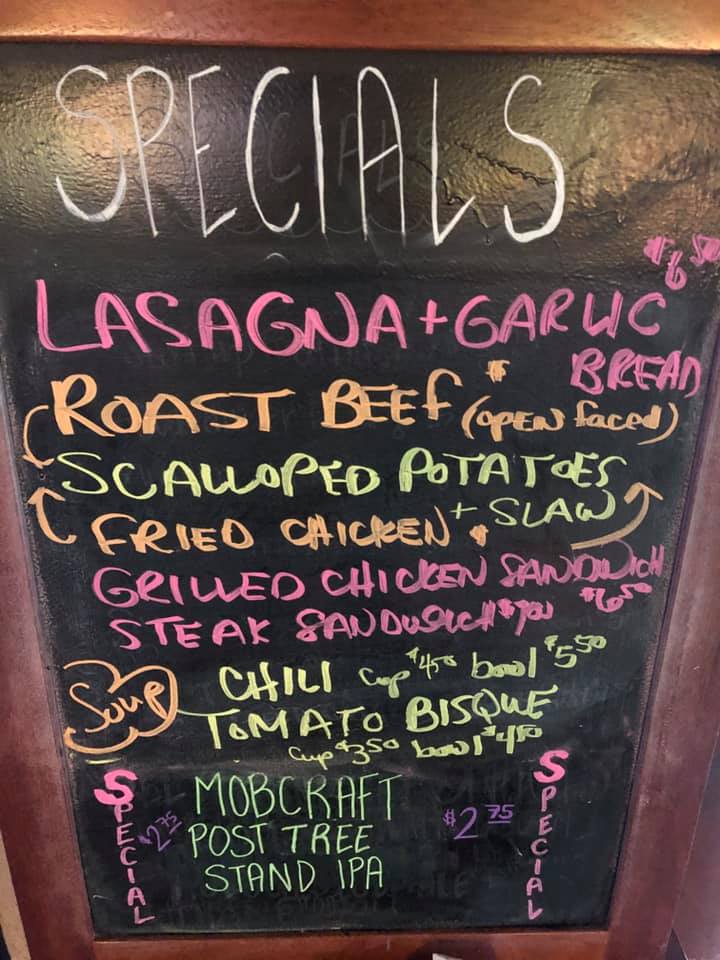 SPECIALS
$6.50
LASAGNA + GARLIC
BREAD
ROAST BEEF (OPEN faced) $
SCALLOPED POTATOES
+ SLAW
FRIED CHICKEN $
GRILLED CHICKEN SANDWICH
$6.50
STEAK SANDWICH
Soup
CHILI Cup $4.50 bowl $5.50
TOMATO BISQUE
Cup $3.50 bowl $4.50
SPECIAL
$2.75
MOBCRAFT
POST TREE
STAND IPA
$2.75
SPECIAL